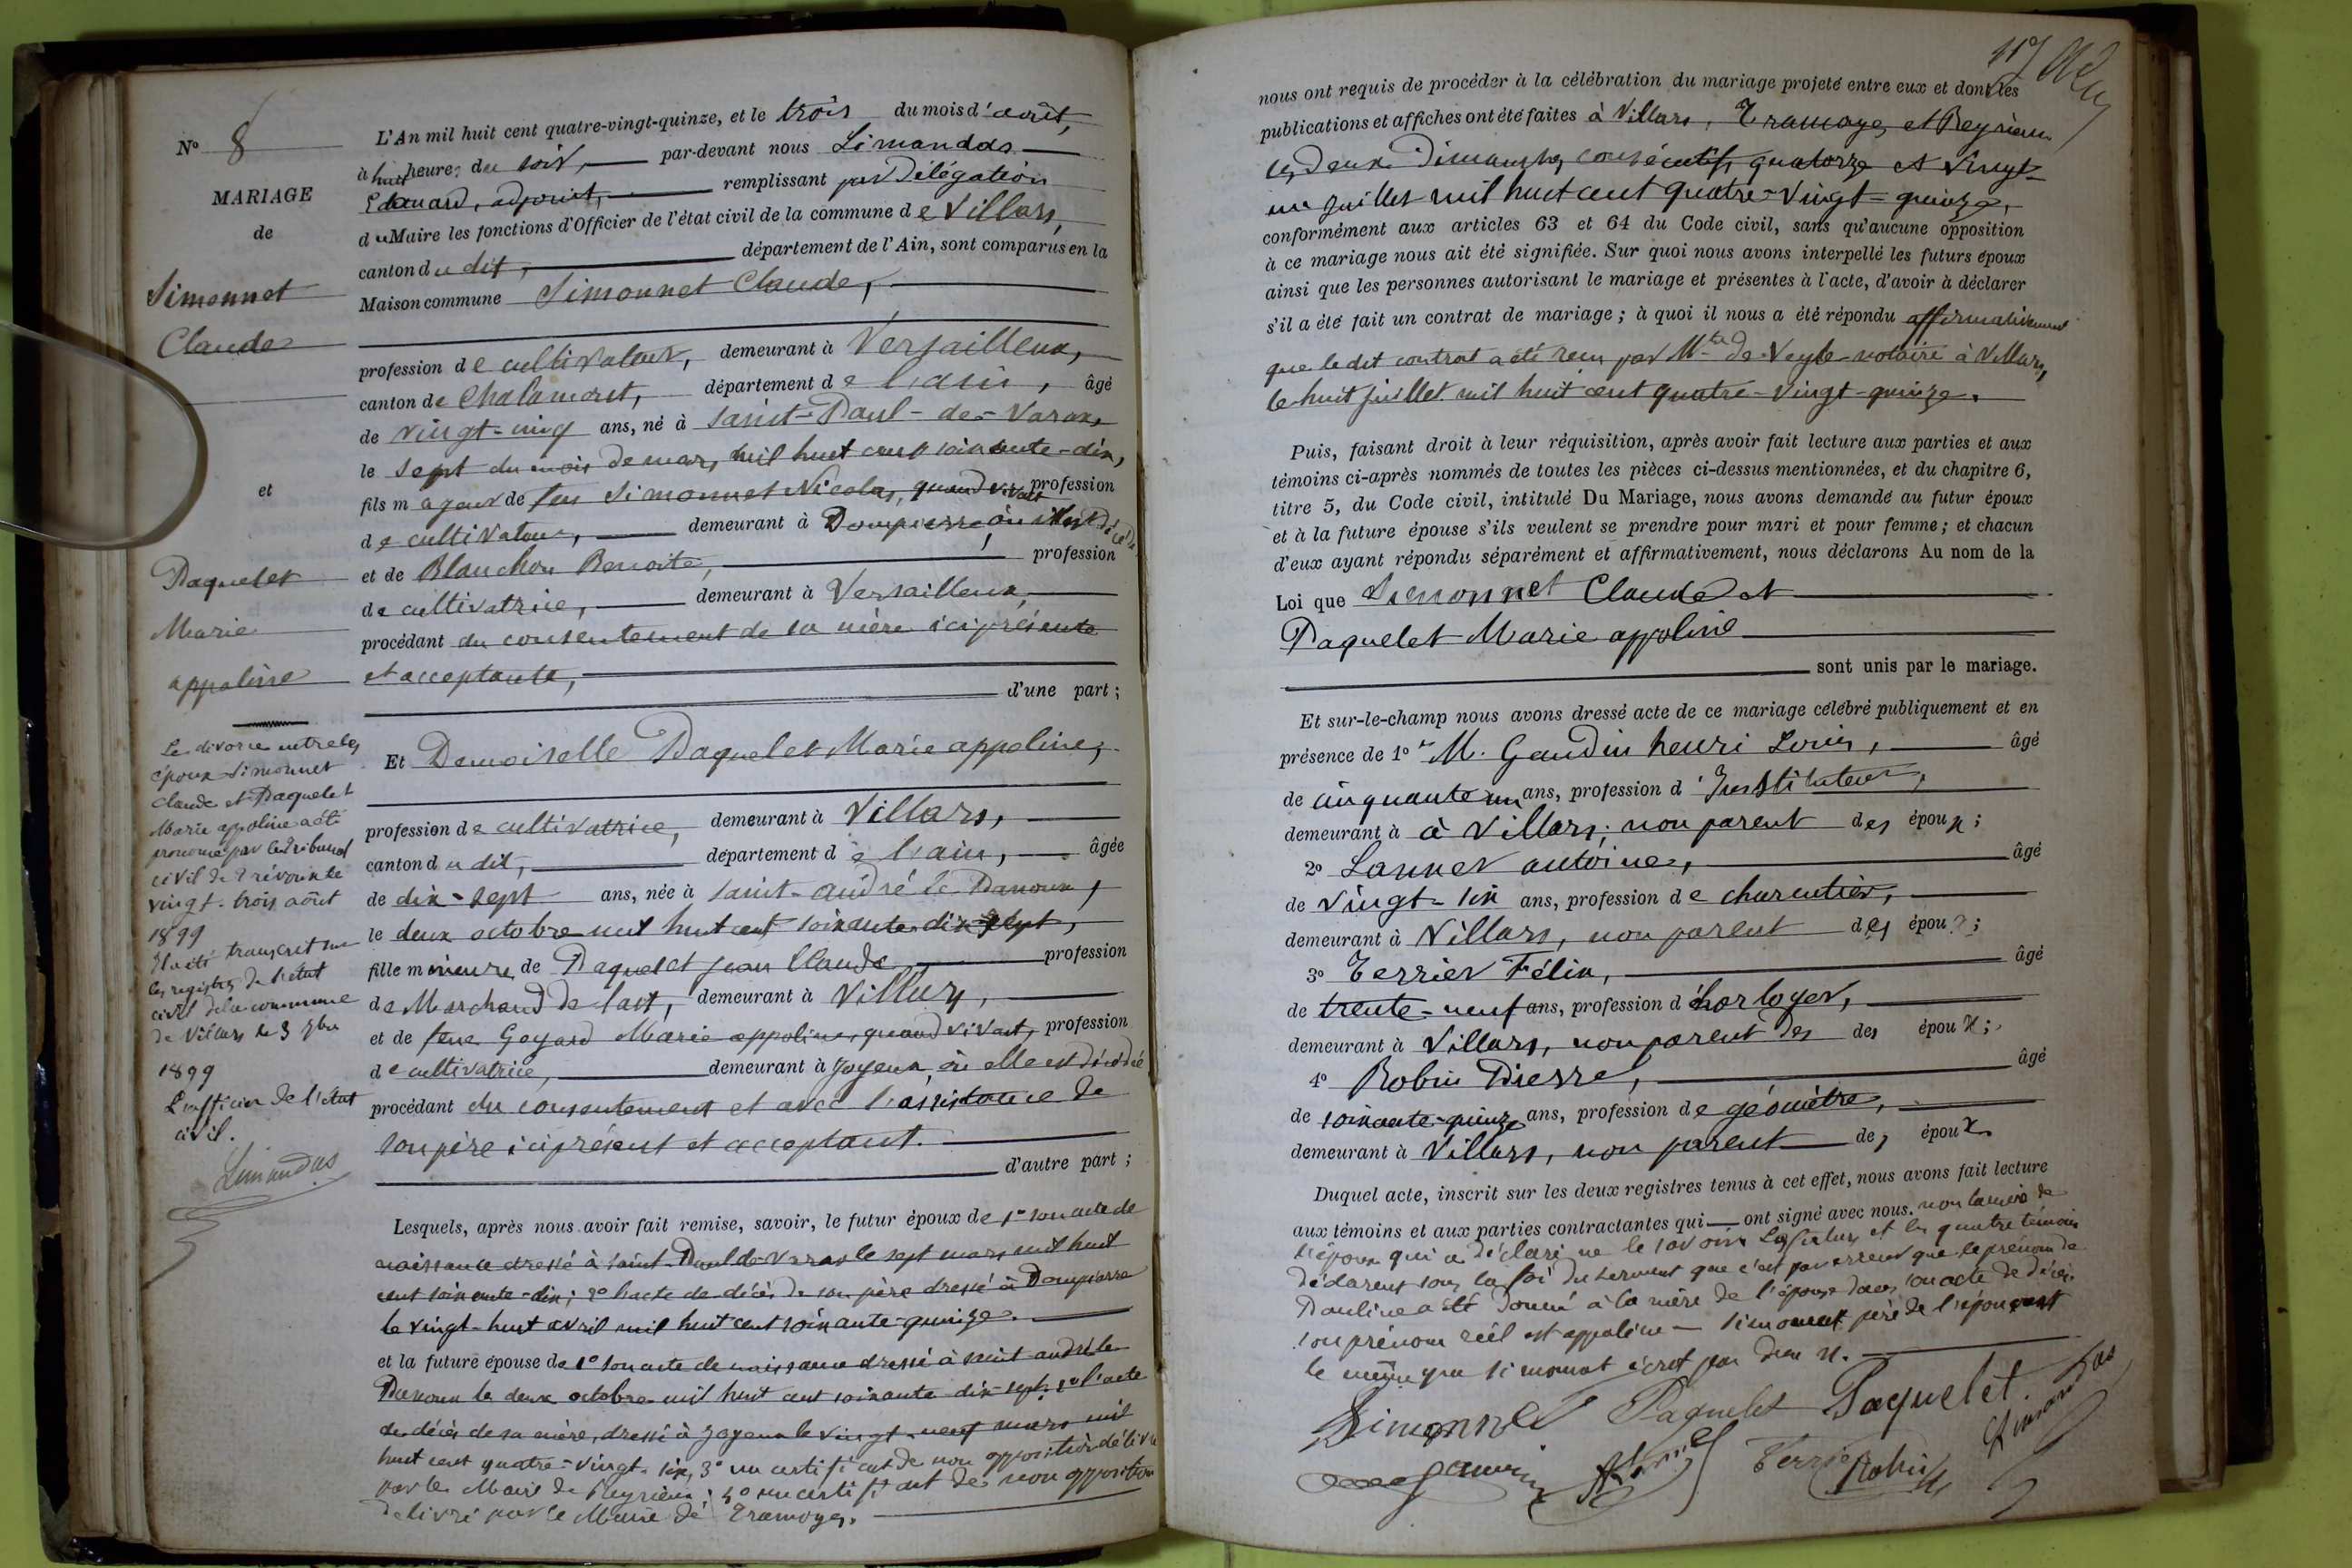 N° 8
MARIAGE
de
Simonnet
Claude
et
Paquelet
Marie
appoline
Le divorce entre les
époux Simonnet
Claude et Paquelet
Marie appoline a été
prononcé par le tribunal
civil de Trévoux le
vingt-trois août
1899
Il a été transcrit sur
les registres de l'état
civil de la commune
de Villars le 3 9bre
1899
L'officier de l'état
civil.
Limandas
L'An mil huit cent quatre-vingt-quinze, et le trois du mois d'août,
à huit heures du soir, par-devant nous Limandas
Edouard, adjoint, remplissant par Délégation
du Maire les fonctions d'Officier de l'état civil de la commune de Villars,
canton du dit, département de l'Ain, sont comparus en la
Maison commune Simonnet Claude,
profession de cultivateur, demeurant à Versailleux,
canton de Chalamont, département de l'ain, âgé
de vingt-cinq ans, né à Saint-Paul-de-Varax,
le sept du mois de mars mil huit cent soixante-dix,
fils majeur de feu Simonnet Nicolas, quand vivait profession
de cultivateur, demeurant à Dompierre, où il est décédé
et de Blanchon Benoite, profession
de cultivatrice, demeurant à Versailleux,
procédant du consentement de sa mère ici présente
et acceptante,
d'une part;
Et Demoiselle Paquelet Marie appoline,
profession de cultivatrice, demeurant à Villars,
canton du dit, département de l'ain, âgée
de dix-sept ans, née à Saint-andré le Panoux,
le deux octobre mil huit cent soixante dix sept,
fille mineure de Paquelet jean Claude, profession
de Marchand de lait, demeurant à Villars,
et de feue Goyard Marie appoline, quand vivait, profession
de cultivatrice, demeurant à Joyeux, où elle est décédée
procédant du consentement et avec l'assistance de
son père ici présent et acceptant.
d'autre part;
Lesquels, après nous avoir fait remise, savoir, le futur époux de 1° son acte de
naissance dressé à Saint-Paul de Varax le sept mars mil huit
cent soixante-dix; 2° l'acte de décès de son père dressé à Dompierre
le vingt-huit avril mil huit cent soixante-quinze.
et la future épouse de 1° son acte de naissance dressé à Saint andré le
Panoux le deux octobre mil huit cent soixante dix-sept; 2° l'acte
de décès de sa mère, dressé à Joyeux le vingt-neuf mars mil
huit cent quatre-vingt-six, 3° un certificat de non opposition délivré
par le Maire de Reyrieux; 4° un certificat de non opposition
délivré par le Maire de Tramoyes.
117
nous ont requis de procéder à la célébration du mariage projeté entre eux et dont les
publications et affiches ont été faites à Villars, Tramoyes et Reyrieux
les deux Dimanches consécutifs quatorze et vingt-
un juillet mil huit cent quatre-vingt-quinze,
conformément aux articles 63 et 64 du Code civil, sans qu'aucune opposition
à ce mariage nous ait été signifiée. Sur quoi nous avons interpellé les futurs époux
ainsi que les personnes autorisant le mariage et présentes à l'acte, d'avoir à déclarer
s'il a été fait un contrat de mariage; à quoi il nous a été répondu affirmativement
que le dit contrat a été reçu par Mtre de Veyle notaire à Villars,
le huit juillet mil huit cent quatre-vingt-quinze.
Puis, faisant droit à leur réquisition, après avoir fait lecture aux parties et aux
témoins ci-après nommés de toutes les pièces ci-dessus mentionnées, et du chapitre 6,
titre 5, du Code civil, intitulé Du Mariage, nous avons demandé au futur époux
et à la future épouse s'ils veulent se prendre pour mari et pour femme; et chacun
d'eux ayant répondu séparément et affirmativement, nous déclarons Au nom de la
Loi que Simonnet Claude et
Paquelet Marie appoline
sont unis par le mariage.
Et sur-le-champ nous avons dressé acte de ce mariage célébré publiquement et en
présence de 1° M. Gaudin henri Louis, âgé
de cinquante un ans, profession d'Instituteur,
demeurant à à Villars; non parent des époux;
2° Lannet antoine, âgé
de vingt-six ans, profession de charcutier,
demeurant à Villars, non parent des époux;
3° Terrier Félix, âgé
de trente-neuf ans, profession d'horloger,
demeurant à Villars, non parent des des époux;
4° Robin Pierre, âgé
de soixante-quinze ans, profession de géomètre,
demeurant à Villars, non parent des époux.
Duquel acte, inscrit sur les deux registres tenus à cet effet, nous avons fait lecture
aux témoins et aux parties contractantes qui ont signé avec nous. non la mère de
l'époux qui a déclaré ne le savoir Les futurs et les quatre témoins
déclarent sous la foi du serment que c'est par erreur que le prénom de
Pauline a été donné à la mère de l'épouse dans son acte de décès.
son prénom réel est appoline - Simonnet père de l'époux est
le même que Simonnot écrit par deux n.
Simonnet Paquelet Paquelet. Limandas
Gaudin Terrier Robin